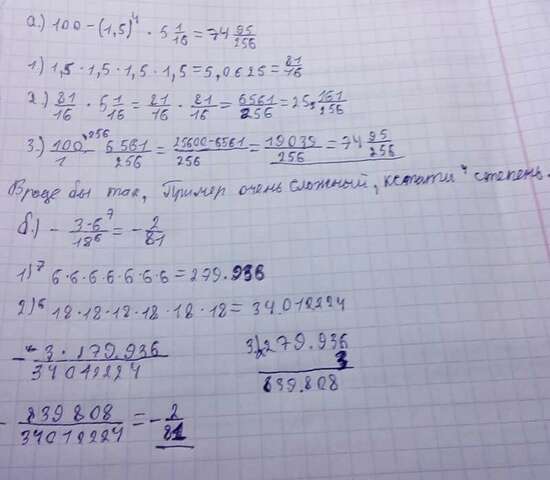 а.) 100 - (1,5)⁴ · 5 1/16 = 74 95/256
1.) 1,5 · 1,5 · 1,5 · 1,5 = 5,0625 = 81/16
2.) 81/16 · 5 1/16 = 81/16 · 81/16 = 6561/256 = 25 161/256
3.) 100/1 ·256 - 6561/256 = 25600-6561/256 = 19039/256 = 74 95/256
Вроде бы так, Пример очень сложный, кстати 4 степень.
б.) - 3·6⁷/18⁶ = - 2/81
1) 7 6·6·6·6·6·6·6 = 279.936
2) 6 18·18·18·18·18·18 = 34.012224
- 3·279.936/34012224
3) 279.936
3
839.808
- 839808/34012224 = - 2/81